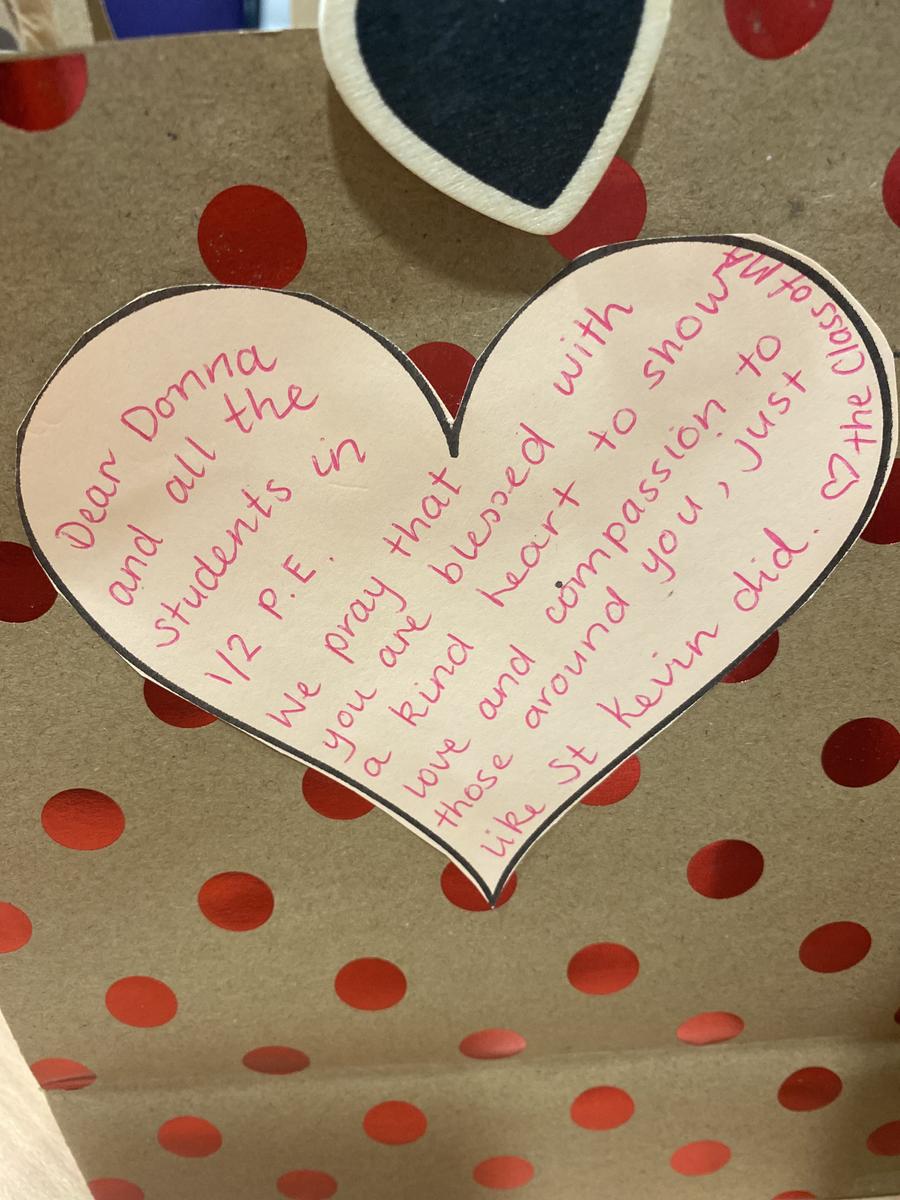 Dear Donna
and all the
students in
1/2 P.E.
We pray that
you are blessed with
a kind heart to show
love and compassion to
those around you, just
like St Kevin did.
the Class of